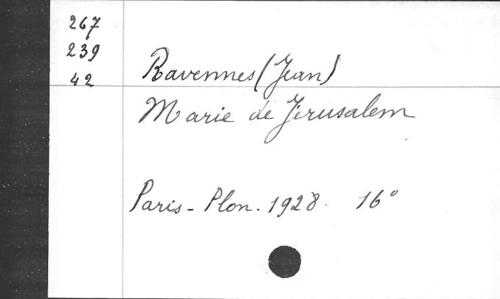 267
239
42
Ravennes (Jean)
Marie de Jérusalem
Paris - Plon. 1928. 16°